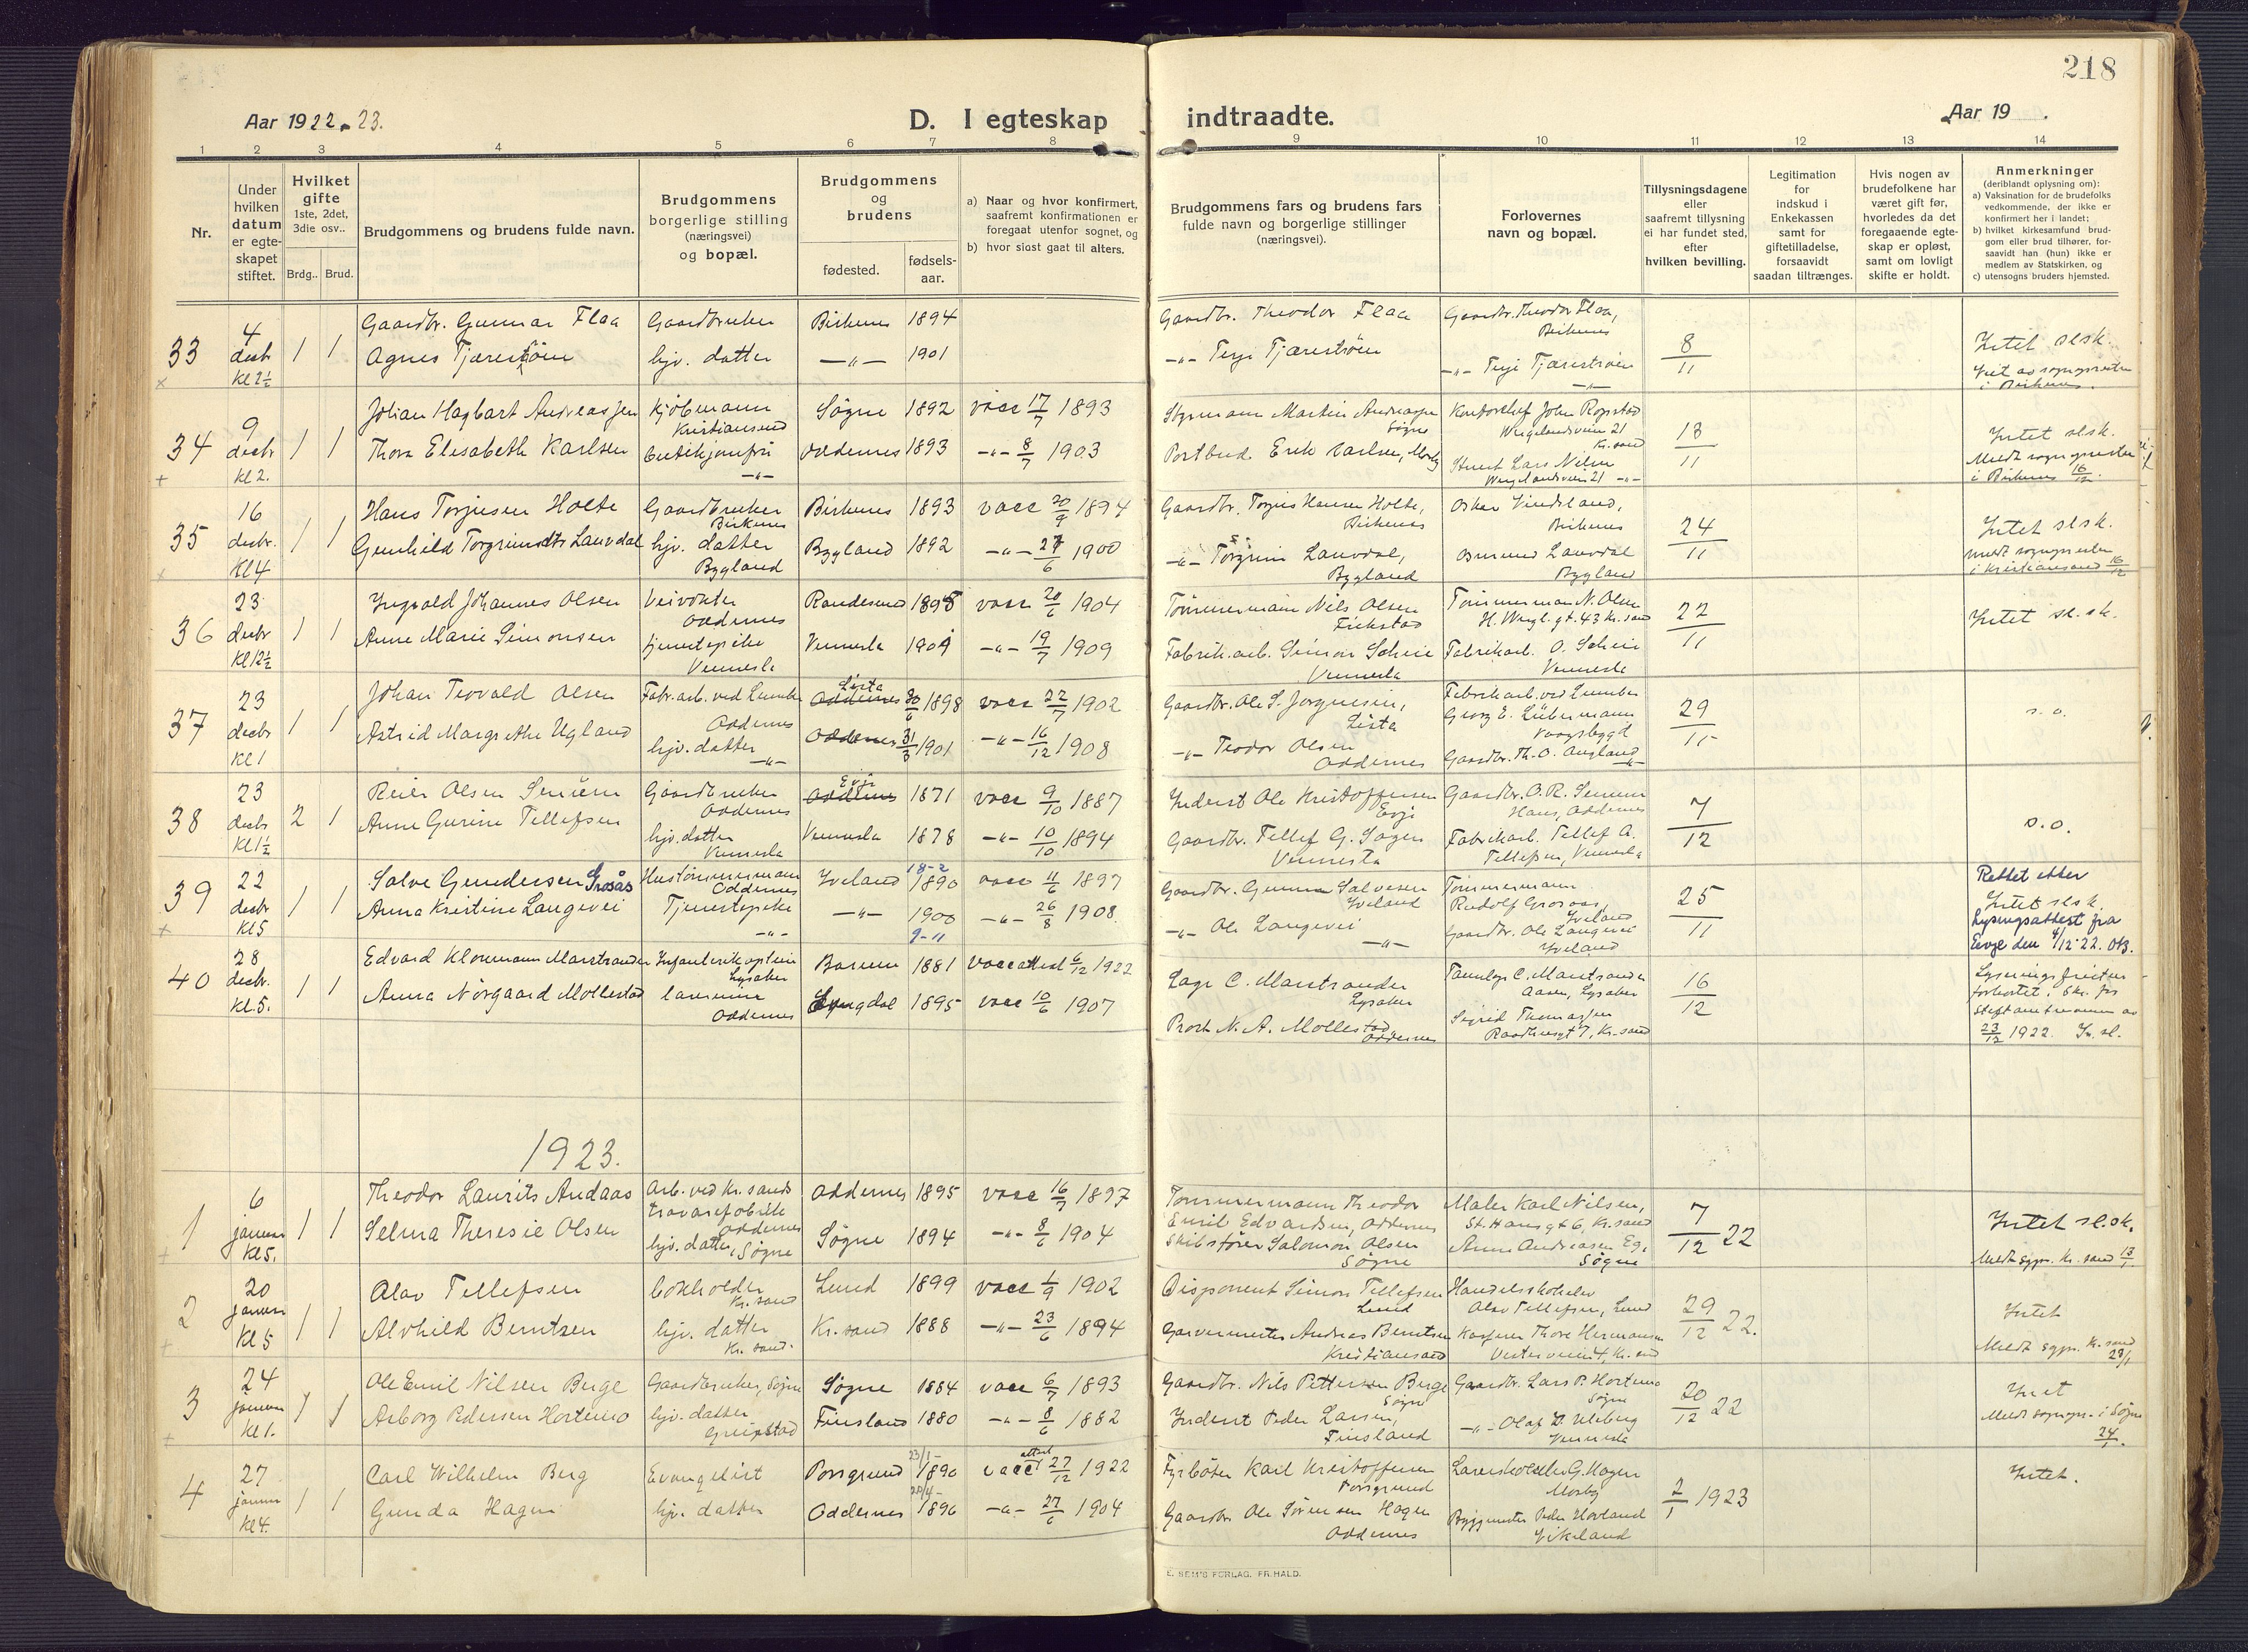 218
Aar 1922-23.
D. I egteskap indtraadte.
Aar 19 .
1 2 3 4 5 6 7 8 9 10 11 12 13 14
Nr.
Under hvilken datum er egte-skapet stiftet.
Hvilket gifte 1ste, 2det, 3die osv..
Brdg.. Brud.
Brudgommens og brudens fulde navn.
Brudgommens borgerlige stilling (næringsvei) og bopæl.
Brudgommens og brudens
fødested.
fødsels-aar.
a) Naar og hvor konfirmert, saafremt konfirmationen er foregaat utenfor sognet, og
b) hvor sidst gaat til alters.
Brudgommens fars og brudens fars fulde navn og borgerlige stillinger (næringsvei).
Forlovernes navn og bopæl.
Tillysningsdagene eller saafremt tillysning ei har fundet sted, efter hvilken bevilling.
Legitimation for indskud i Enkekassen samt for giftetilladelse, forsaavidt saadan tiltrænges.
Hvis nogen av brudefolkene har været gift før, hvorledes da det foregaaende egte-skap er opløst, samt om lovligt skifte er holdt.
Anmerkninger
(deriblandt oplysning om):
a) Vaksination for de brudefolks vedkommende, der ikke er konfirmert her i landet;
b) hvilket kirkesamfund brud-gom eller brud tilhører, for-saavidt han (hun) ikke er medlem av Statskirken, og
c) utensogns bruders hjemsted.
33 4 decbr Kl 2½ 1 1
Gaardbr. Gunnar Flaa Gaardbruker Birkenes 1894
Agnes Tjærestrøm hjv. datter —"— 1901
Gaardbr. Theodor Flaa Gaardbr. Theodor Flaa, Birkenes
—"— Terje Tjærestrøm —"— Terje Tjærestrøm —"—
8/11
Intet slsk.
i Birkenes.
34 9 decbr Kl 2. 1 1
Johan Hagbart Andreassen Kjøbmann Kristiansand Søgne 1892 vacc 17/7 1893
Thora Elisabeth Karlsen butikjomfru —"— Oddernes 1893 —"— 8/7 1903
Styrmann Martin Andreassen Søgne Kontorchef John Ropstad Wergelandsveien 21 Kr.sand
Postbud Erik Karlsen, Mosby Lars Nilsen Wergelandsveien 21 —"—
18/11
Intet slsk.
Meldt sognepresten i Birkenes 16/12
35 16 decbr. Kl 4 1 1
Hans Torjusen Holte Gaardbruker Birkenes Birkenes 1893 vacc 20/9 1894
Gunhild Torgrimsdtr Lauvdal hjv. datter Bygland Bygland 1892 —"— 27/6 1900
Gaardbr. Torjus Hansen Holte, Birkenes Oskar Vindsland, Birkenes
—"— Torgrim Lauvdal, Bygland Osmund Lauvdal Bygland
24/11
Intet slsk.
meldt sognepresten i Kristiansand 16/12
36 23 decbr Kl 12½ 1 1
Ingvald Johannes Olsen Veivokter Oddernes Randesund 1895 vacc 20/6 1904
Anne Marie Simonsen tjenestepike Vennesla Vennesla 1904 —"— 19/7 1909
Tømmermann Nils Olsen Tømmermann N. Olsen H. Wergl.gt. 43 Kr.sand
Fabrik.arb. Simon Scheie Vennesla Fabrikarb. O. Scheie Vennesla
22/11
Intet sl.sk.
37 23 decbr Kl 1 1 1
Johan Teovald Olsen Fabr.arb. ved Lumber Oddernes Lista 30/6 1898 vacc 22/7 1902
Astrid Margrethe Ugland hjv. datter —"— Oddernes 31/3 1901 —"— 16/12 1908
Gaardbr. Ole S. Jørgensen, Lista Fabrikarb. ved Lumber Georg E. Lübermann Vaagsbygd
—"— Teodor Olsen Oddernes Gaardbr. Th. O. Augland —"—
29/11
s.o.
38 23 decbr Kl 1½ 2 1
Reier Olsen Senum Gaardbruker Oddernes Evje 1871 vacc 9/10 1887
Anne Gurine Tellefsen hjv. datter Vennesla Vennesla 1878 —"— 10/10 1894
Inderst Ole Kristoffersen Evje Gaardbr. O. R. Senum Hans, Oddernes
Gaardbr. Tellef G. Sagen Vennesla Fabrikarb. Tellef A. Tellefsen, Vennesla
7/12
s.o.
39 22 decbr Kl 5 1 1
Salve Gundersen Grosås Hustømmermann Oddernes Iveland 18-2 1890 vacc 11/6 1897
Anna Kristine Langevei Tjenestepike —"— —"— 1900 9-11 —"— 26/8 1908.
Gaardbr. Gunnar Salvesen Iveland Tømmermann Rudolf Grosaas, Iveland
—"— Ole Langevei —"— Gaardbr. Ole Langevei Iveland
25/11
Rettet etter
Intet slsk.
lysingsattest fra
Evje den 4/12-22.
40 28 decbr. Kl. 5. 1 1
Edvard Kloumann Marstrander Infanterikaptein Lysaker Bærum 1881 vaccattest 6/12 1922
Anna Nørgaard Mollestad lærerinne Oddernes Lyngdal 1895 vacc 10/6 1907
C. Marstrander Lysaker Tannlege C. Marstrander Aasen, Lysaker
Prost N. A. Mollestad Oddernes Sigrid Thomassen Raadhusgt 7, Kr.sand
16/12
Lysningsfristen forkortet. Skr. fra Stiftamtmannen av 23/12 1922. In. sl.
1923.
1 6 januar Kl 5. 1 1
Theodor Laurits Andaas Arb. ved Kr.sands trævarefabrik Oddernes Oddernes 1895 vacc 16/7 1897
Selma Theresie Olsen hjv. datter, Søgne Søgne 1894 —"— 8/6 1904
Tømmermann Theodor Emil Edvardsen, Oddernes Maler Karl Nilsen, St. Hansgt 6, Kr.sand
Skibsfører Salomon Olsen Søgne Anna Andreasen Eg, Søgne
7/12 22
Intet sl.sk.
Meldt sgpr. Kr.sand 13/1
2 20 januar Kl 5 1 1
Alav Tellefsen bokholder Kr.sand Lund 1899 vacc 1/9 1902
Alvhild Berntsen hjv. datter Kr.sand. Kr.sand 1888 —"— 23/6 1894
Disponent Simon Tellefsen Lund Handelsskoleelev Olav Tellefsen, Lund
Garvermester Andreas Berntsen Kristiansand Kasserer Thore Hermansen Vesterveien 4, Kr.sand
29/12 22.
Intet
Meldt sgpr. Kr.sand 28/1
3 24 januar Kl 1. 1 1
Ole Emil Nilsen Berge Gaardbruker, Søgne Søgne 1884 vacc 6/7 1893
Asborg Pedersen Hortemo hjv. datter Greipstad Finsland 1880 —"— 8/6 1882
Gaardbr. Nils Pettersen Berge Søgne Gaardbr. Lars P. Hortemo Søgne
Inderst Peder Larsen, Finsland —"— Olaf D. Uleberg Vennesla
20/12 22
Intet
Meldt sognepr. i Søgne 24/1.
4 27 januar Kl 4. 1 1
Carl Wilhelm Berg Evangelist Porsgrund 23/1- 1890 vacc attest 27/12 1922
Gunda Hagen hjv. datter Oddernes 20/4- 1896 —"— 27/6 1904
Fyrbøter Karl Kristoffersen Porsgrund G. Hagen Mosby
Gaardbr Ole Sørensen Hagen Oddernes Byggmester Peder Hovland Vikeland
2/1 1923
Intet.
E. SEM'S FORLAG. FR.HALD.